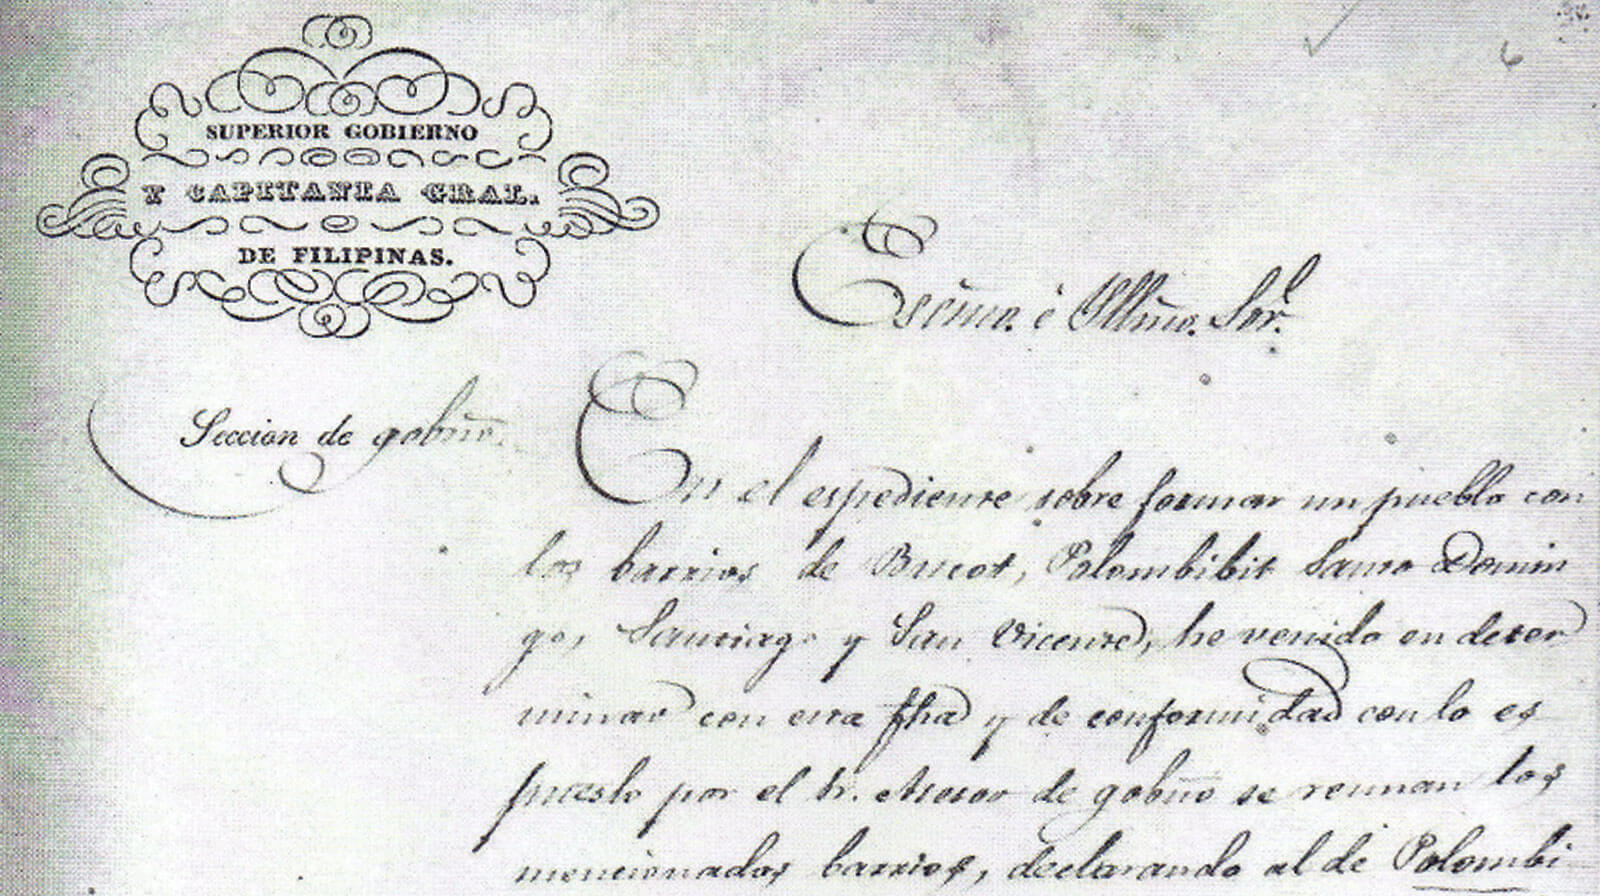 SUPERIOR GOBIERNO
Y CAPITANIA GRAL.
DE FILIPINAS.
6
Escmo. é Illmo. Sor.
Seccion de gobno.
En el espediente sobre formar un pueblo con
los barrios de Bucot, Polombibit Santo Domin
go, Santiago y San Vicente, he venido en deter
minar con esta fha y de conformidad con lo es
puesto por el Sr. Asesor de gobno se reunan los
mencionados barrios, declarando al de Polombi